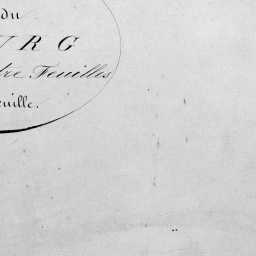 du
URG
tre Feuilles
euille.